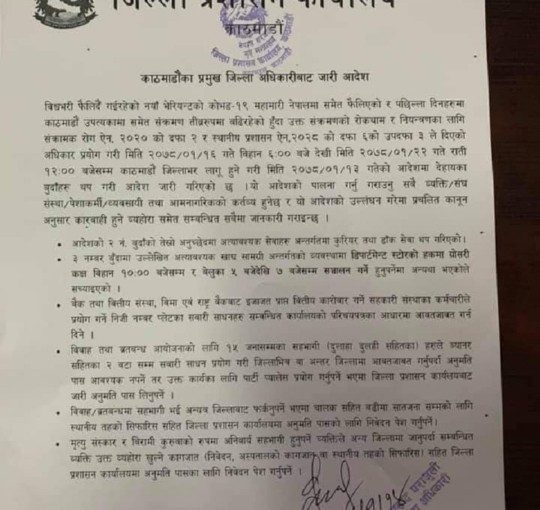 जिल्ला प्रशासन कार्यालय
काठमाडौं
काठमाडौंका प्रमुख जिल्ला अधिकारीबाट जारी आदेश
विश्वभरी फैलिदैं गईरहेको नयाँ भेरियन्टको कोभिड-१९ महामारी नेपालमा समेत फैलिएको र पछिल्ला दिनहरुमा
काठमाडौं उपत्यकामा समेत संक्रमण तीव्ररुपमा बढिरहेको हुँदा उक्त संक्रमणको रोकथाम र नियन्त्रणका लागि
संक्रामक रोग ऐन, २०२० को दफा २ र स्थानीय प्रशासन ऐन,२०२८ को दफा ६को उपदफा ३ ले दिएको
अधिकार प्रयोग गरी मिति २०७८/०१/१६ गते विहान ६:०० बजे देखी मिति २०७८/०१/२२ गते राती
१२:०० बजेसम्म काठमाडौं जिल्लाभर लागू हुने गरी मिति २०७८/०१/१३ गतेको आदेशमा देहायका
वुदाँहरु थप गरी आदेश जारी गरिएको छ । यो आदेशको पालना गर्नु गराउनु सबै व्यक्ति/संघ
संस्था/पेशाकर्मी/व्यवसायी तथा आमनागरिकको कर्तव्य हुनेछ र यो आदेशको उल्लंघन गरेमा प्रचलित कानून
अनुसार कारवाही हुने व्यहोरा समेत सम्बन्धित सबैमा जानकारी गराइन्छ ।
• आदेशको २ नं. वुदाँको तेस्रो अनुच्छेदमा अत्यावश्यक सेवाहरु अन्तर्गतमा कुरियर तथा डाँक सेवा थप गरिएको।
• ३ नम्वर वुँदामा उल्लेखित अत्यावश्यक खाद्य सामाग्री अन्तर्गतको व्यवस्थामा डिपार्टमेन्ट स्टोरको हकमा ग्रोसरी
कक्ष विहान १०:०० बजेसम्म र बेलुका ५ बजेदेखी ७ बजेसम्म संचालन गर्ने हुनुपर्नेमा अन्यथा भएकोले
सच्याइएको ।
• बैंक तथा वित्तीय संस्था, विमा एवं राष्ट्र बैंकबाट इजाजत प्राप्त वित्तीय कारोवार गर्ने सहकारी संस्थाका कर्मचारीले
प्रयोग गर्ने निजी नम्वर प्लेटका सवारी साधनहरु सम्वन्धित कार्यालयको परिचयपत्रका आधारमा आवतजावत गर्न
दिने ।
• विवाह तथा व्रतवन्ध आयोजनाको लागि १५ जनासम्मका सहभागी (दुलाहा दुलही सहितका) हरुले व्यानर
सहितका २ वटा सम्म सवारी साधन प्रयोग गरी जिल्लाभित्र वा अन्तर जिल्लामा आवतजावत गर्नुपर्दा अनुमति
पास आवश्यक नपर्ने तर उक्त कार्यका लागि पार्टी प्यालेस प्रयोग गर्नुपर्ने भएमा जिल्ला प्रशासन कार्यालयबाट
जारी अनुमति पास लिनुपर्ने ।
• विवाह/व्रतवन्धमा सहभागी भई अन्यत्र जिल्लाबाट फर्कनुपर्ने भएमा चालक सहित वढीमा सातजना सम्मको लागि
स्थानीय तहको सिफारिस सहित जिल्ला प्रशासन कार्यालयमा अनुमति पासको लागि निवेदन पेश गर्नुपर्ने।
• मृत्यु संस्कार र विरामी कुरुवाको रुपमा अनिवार्य सहभागी हुनुपर्ने व्यक्तिले अन्य जिल्लामा जानुपर्दा सम्बन्धित
व्यक्ति उक्त व्यहोरा खुल्ने कागजात (निवेदन, अस्पतालको कागजात वा स्थानीय तहको सिफारिस) सहित जिल्ला
प्रशासन कार्यालयमा अनुमति पासका लागि निवेदन पेश गर्नुपर्ने ।